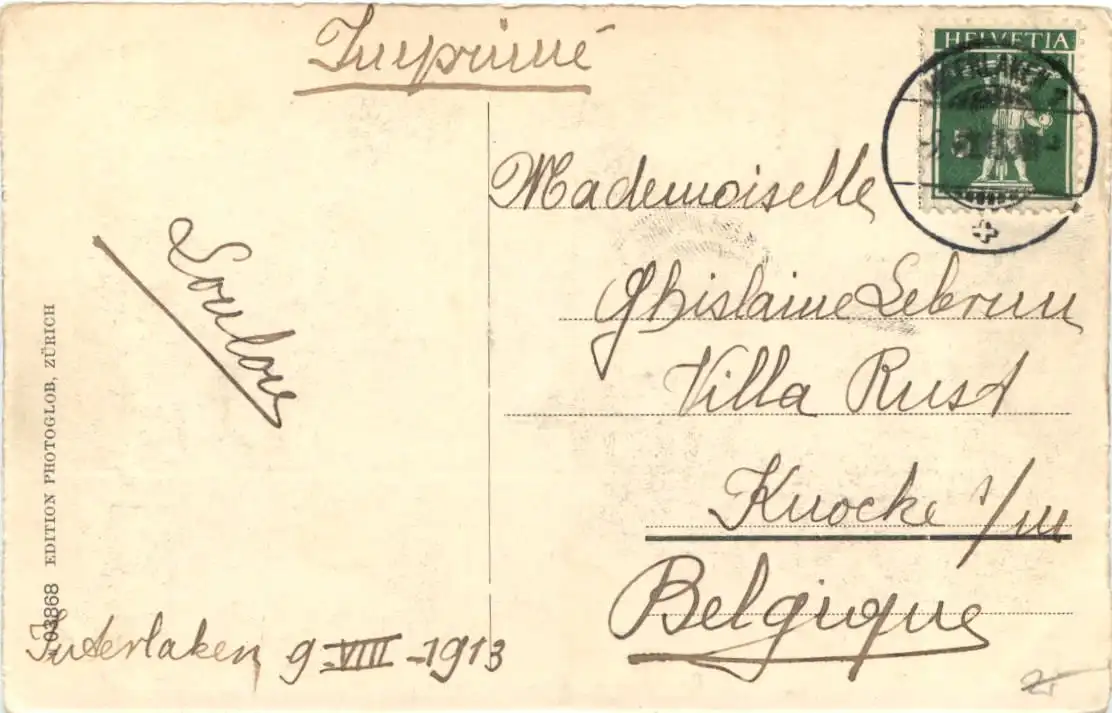 Imprimé
HELVETIA
INTERLAKEN
Mademoiselle
Ghislaine Lebrun
Villa Rust
Knocke s/m
Belgique
Loulou
EDITION PHOTOGLOB, ZÜRICH
03868
Interlaken 9-VIII-1913